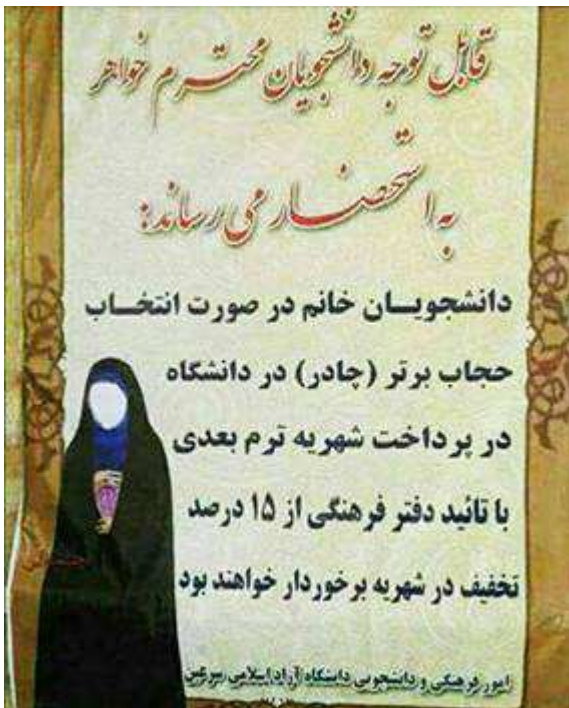 قابل توجه دانشجویان محترم خواهر
به استحضار می رساند:
دانشجویــان خانم در صورت انتخــاب
حجاب برتر (چادر) در دانشگاه
در پرداخت شهریه ترم بعدی
با تائید دفتر فرهنگی از ۱۵ درصد
تخفیف در شهریه برخوردار خواهند بود
امور فرهنگی و دانشجویی دانشگاه آزاد اسلامی سرعین